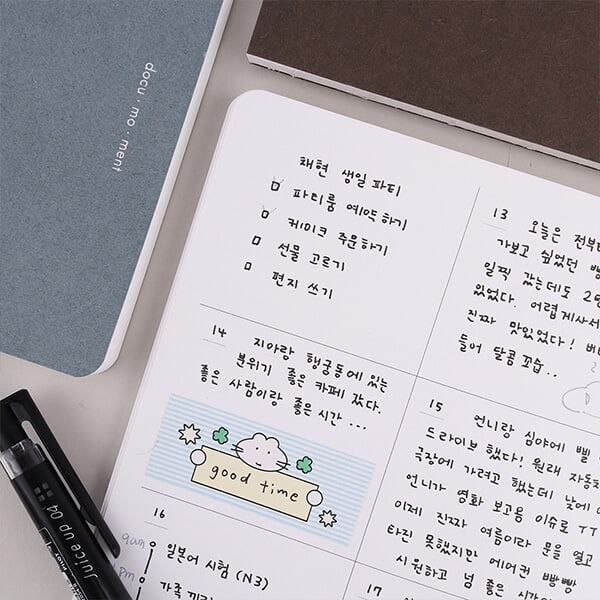 docu · mo · ment
채현 생일 파티
파티룸 예약하기
케이크 주문하기
선물 고르기
편지 쓰기
13 오늘은 전부터
가보고 싶었던 빵
일찍 갔는데도 2명
있었다. 어렵게사서
진짜 맛있었다! 버
들어 달콤 꼬숩..
14 지아랑 행궁동에 있는
분위기 좋은 카페 갔다.
좋은 사람이랑 좋은 시간 ...
good time
15 언니랑 심야에 벨
드라이브 했다! 원래 자동차
극장에 가려고 했는데 낮에
언니가 영화 보고옴 이슈로 ㅜㅜ
이제 진짜 여름이라 문을 열고
타진 못했지만 에어컨 빵빵
시원하고 넘 좋은 시간이
16
9am 일본어 시험 (N3)
pm 가족
17
Juice up 04
PILOT